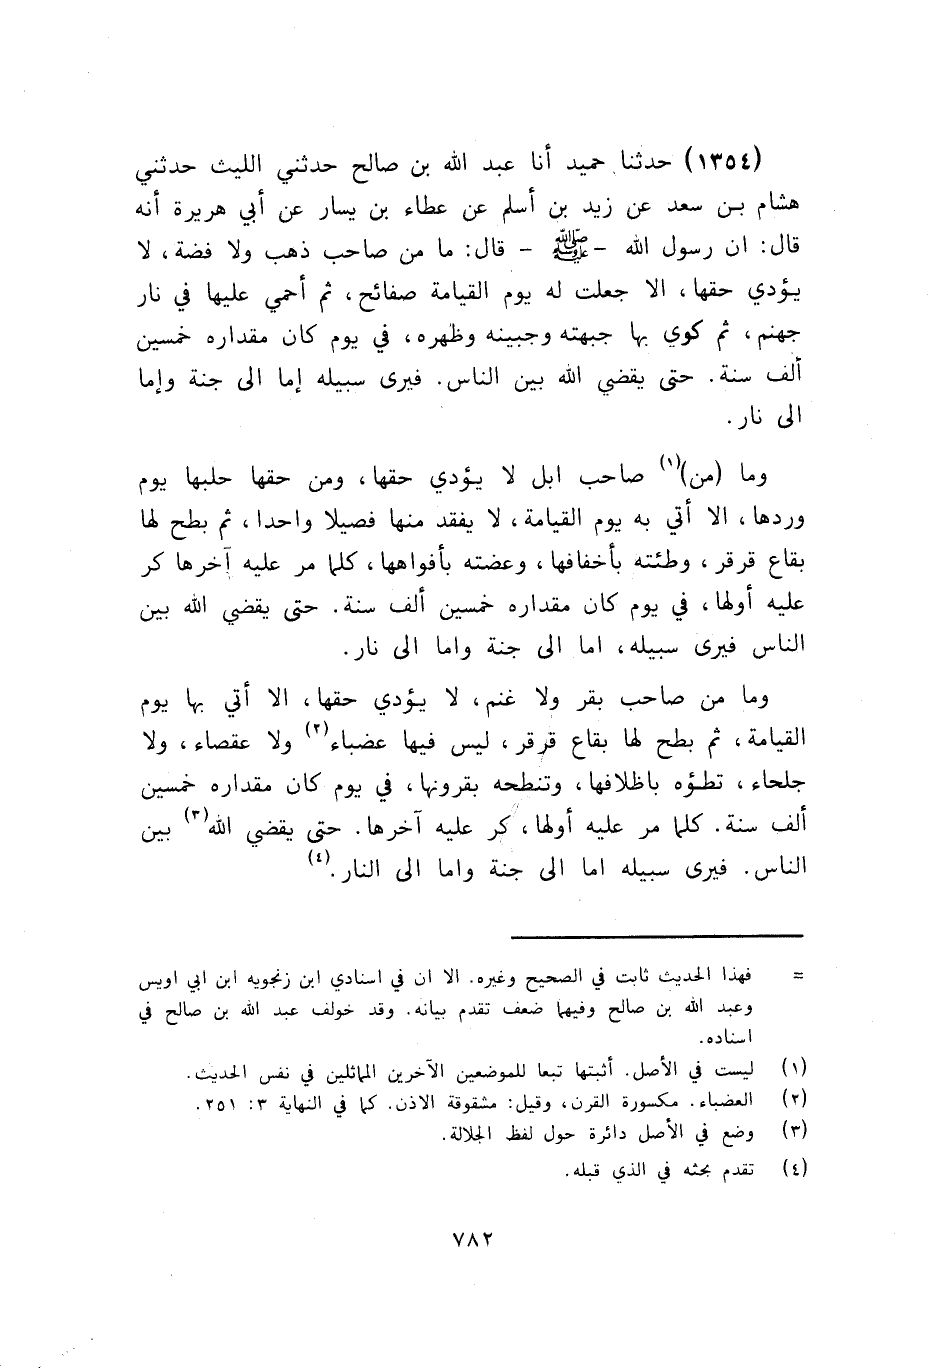 (١٣٥٤) حدثنا حميد أنا عبد الله بن صالح حدثني الليث حدثني
هشام بن سعد عن زيد بن أسلم عن عطاء بن يسار عن أبي هريرة أنه
قال: ان رسول الله - ﷺ - قال: ما من صاحب ذهب ولا فضة، لا
يؤدي حقها، الا جعلت له يوم القيامة صفائح، ثم أحمي عليها في نار
جهنم، ثم كوي بها جبهته وجبينه وظهره، في يوم كان مقداره خمسين
ألف سنة. حتى يقضي الله بين الناس. فيرى سبيله إما الى جنة وإما
الى نار.
وما (من)(١) صاحب ابل لا يؤدي حقها، ومن حقها حلبها يوم
وردها، الا أتي به يوم القيامة، لا يفقد منها فصيلا واحدا، ثم بطح لها
بقاع قرقر، وطئته بأخفافها، وعضته بأفواهها، كلما مر عليه آخرها كر
عليه أولها، في يوم كان مقداره خمسين ألف سنة. حتى يقضي الله بين
الناس فيرى سبيله، اما الى جنة واما الى نار.
وما من صاحب بقر ولا غنم، لا يؤدي حقها، الا أتي بها يوم
القيامة، ثم بطح لها بقاع قرقر، ليس فيها عضباء(٢) ولا عقصاء، ولا
جلحاء، تطؤه باظلافها، وتنطحه بقرونها، في يوم كان مقداره خمسين
ألف سنة. كلما مر عليه أولها، كر عليه آخرها. حتى يقضي الله(٣) بين
الناس. فيرى سبيله اما الى جنة واما الى النار.(٤)
= فهذا الحديث ثابت في الصحيح وغيره. الا ان في اسنادي ابن زنجويه ابن ابي اويس
وعبد الله بن صالح وفيهما ضعف تقدم بيانه. وقد خولف عبد الله بن صالح في
اسناده.
(١) ليست في الأصل. أثبتها تبعا للموضعين الآخرين المماثلين في نفس الحديث.
(٢) العضباء. مكسورة القرن، وقيل: مشقوقة الاذن. كما في النهاية ٣: ٢٥١.
(٣) وضع في الأصل دائرة حول لفظ الجلالة.
(٤) تقدم بحثه في الذي قبله.
٧٨٢